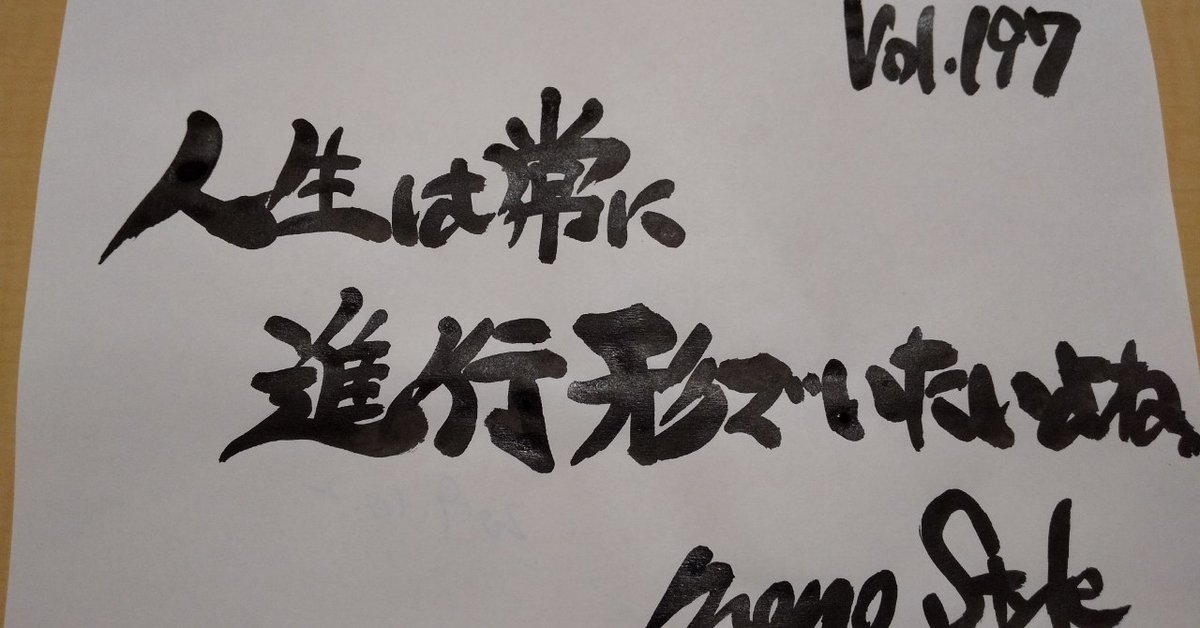 Vol.197
人生は常に
進行形でいたいよね。
Style